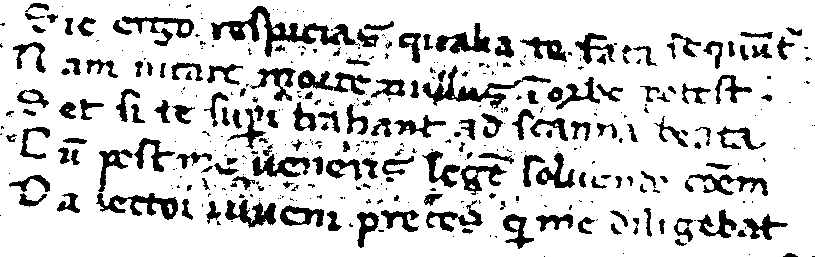 Sic ergo respicias qualia te fata sequūt᷑.
Nam uitare mortē nullus ī orbe potest.
Set si te supi trahant ad scanna beata
Cū post me ueneris legē soluendo coēm
Da lector iuueni preces qi me diligebat